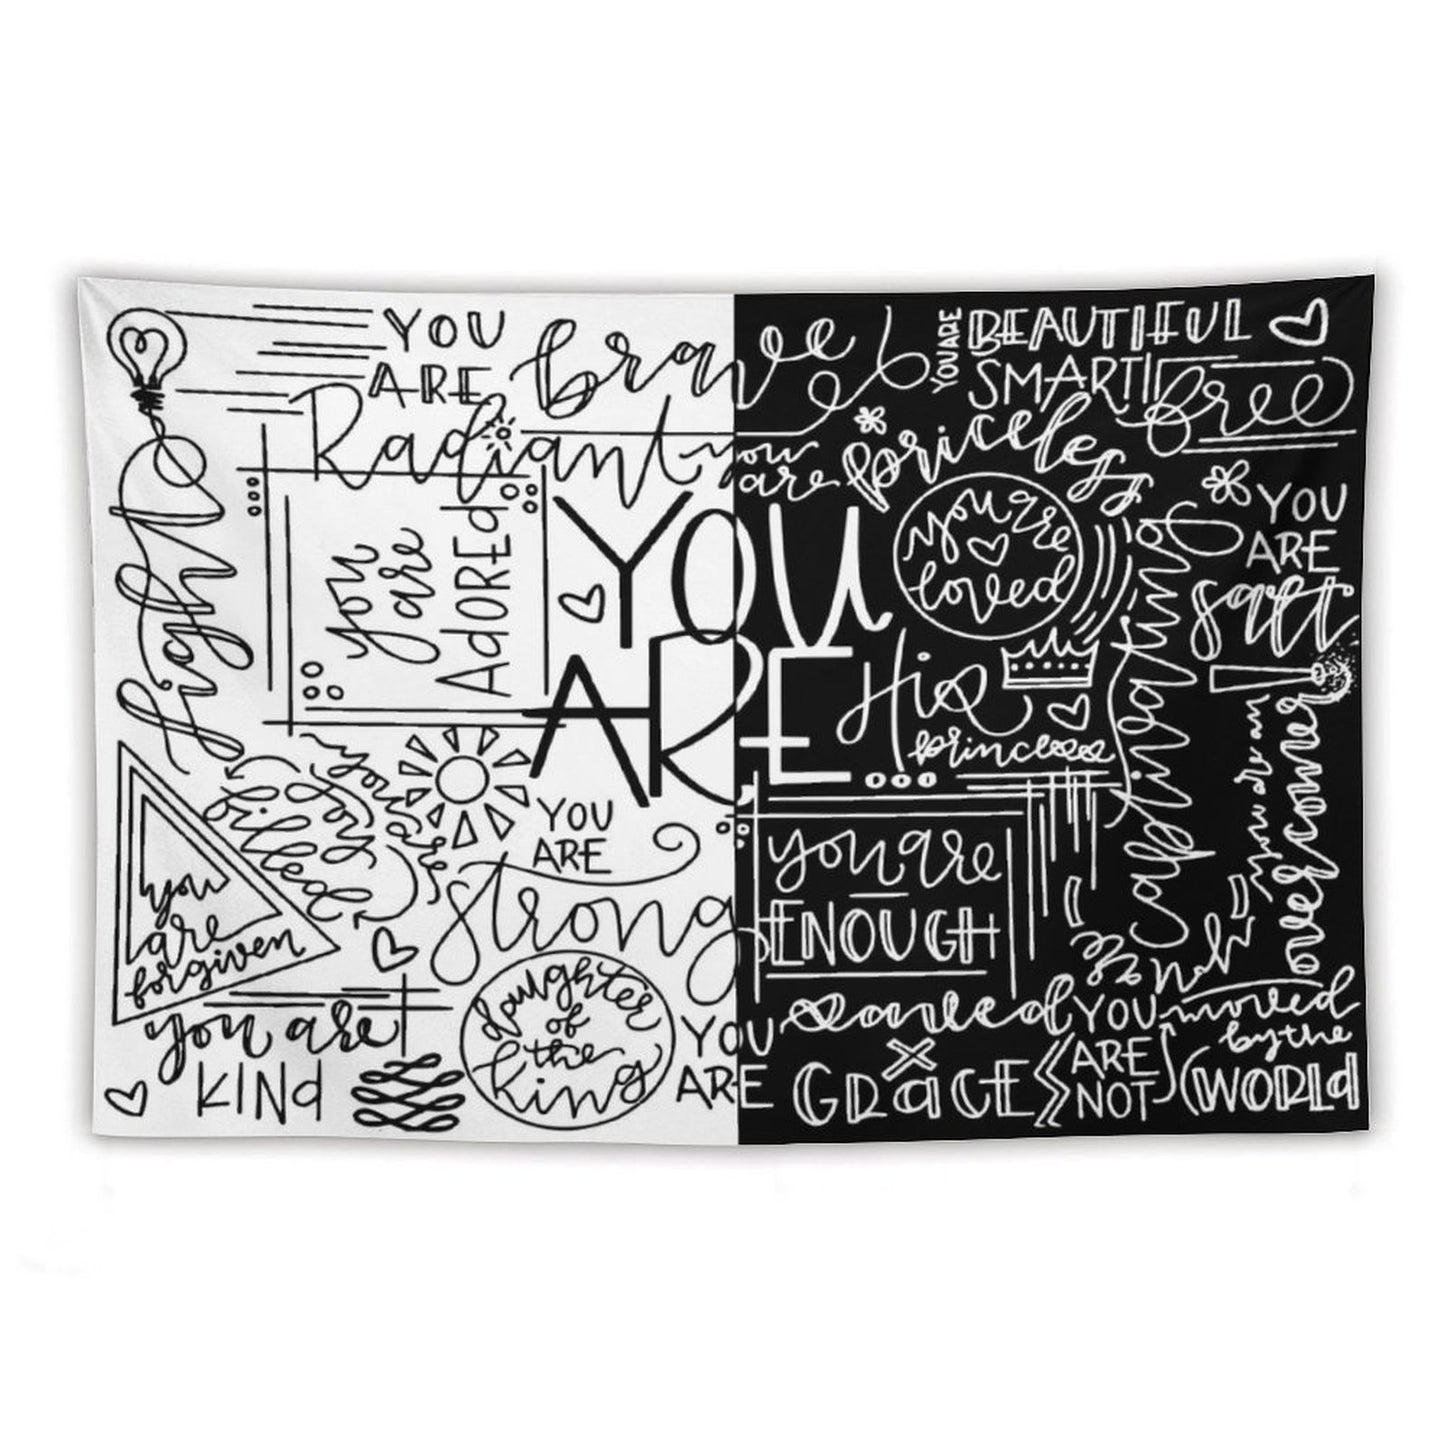 YOU
ARE
brave
Radiant
you
are
ADORED
light
YOU
ARE
you
are
priceless
YOU ARE
BEAUTIFUL
SMART
free
you are
loved
YOU
ARE
salt
His
princess
captivating
you are an
overcomer
you are
joy
filled
you
are
forgiven
YOU
ARE
strong
you are
ENOUGH
you are
KINd
daughter
of
the
king
YOU
ARE
saved
x
GRACE
YOU
ARE
NOT
moved
by the
WORLd